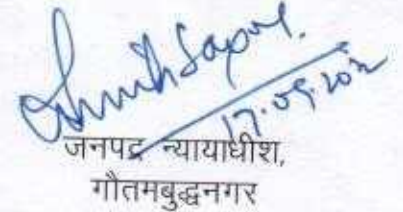 17.09.202
जनपद न्यायाधीश,
गौतमबुद्धनगर